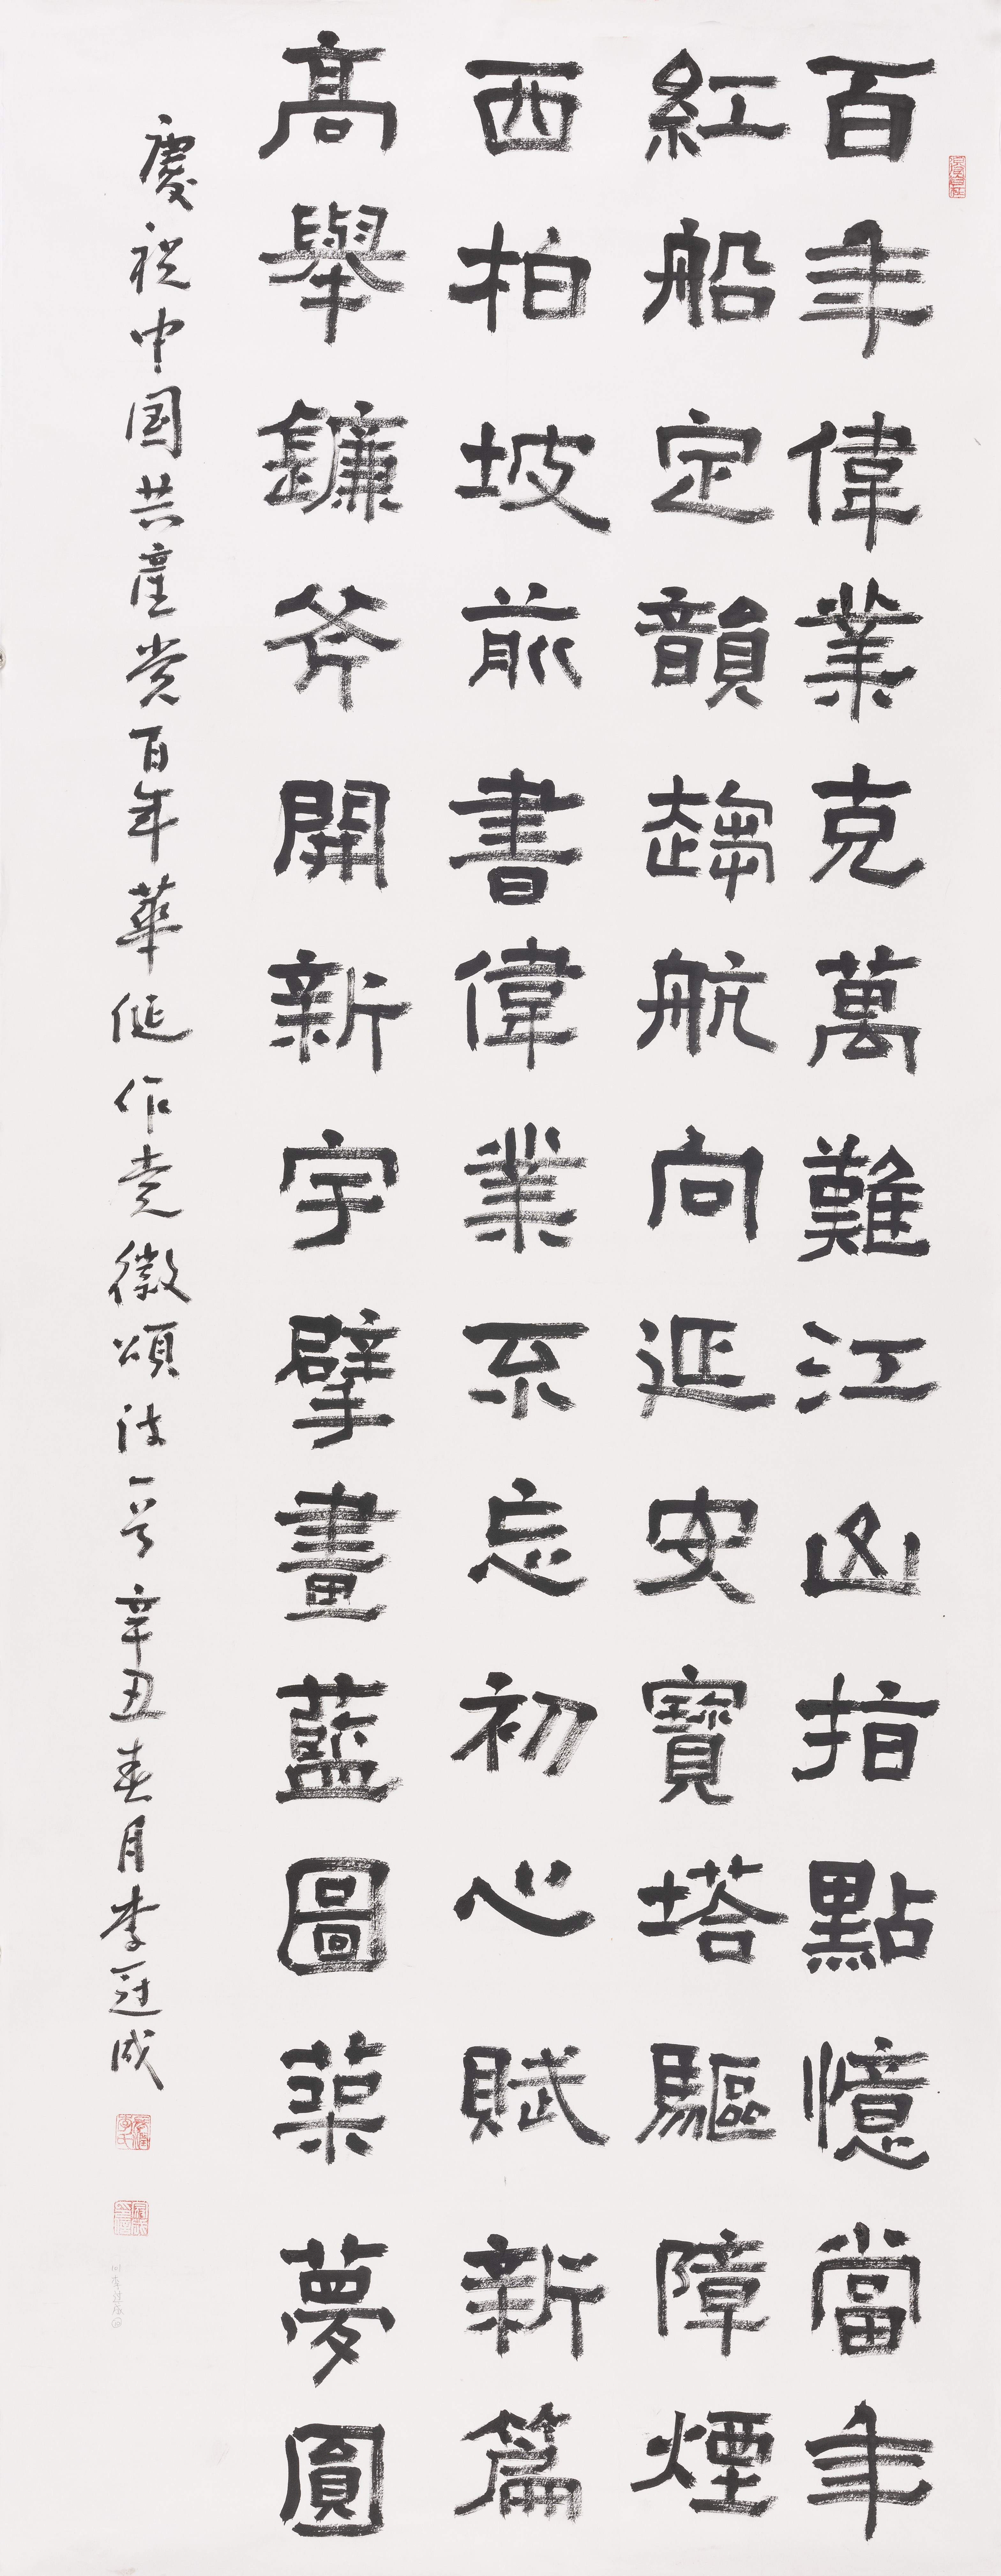 百年偉業克萬難江山指點憶當年
紅船定韻趨航向延安寶塔驅障煙
西柏坡前書偉業不忘初心賦新篇
高舉鐮斧開新宇擘畫藍圖築夢圓
慶祝中国共產党百年華诞作党徽頌诗一首辛丑春月李冠成